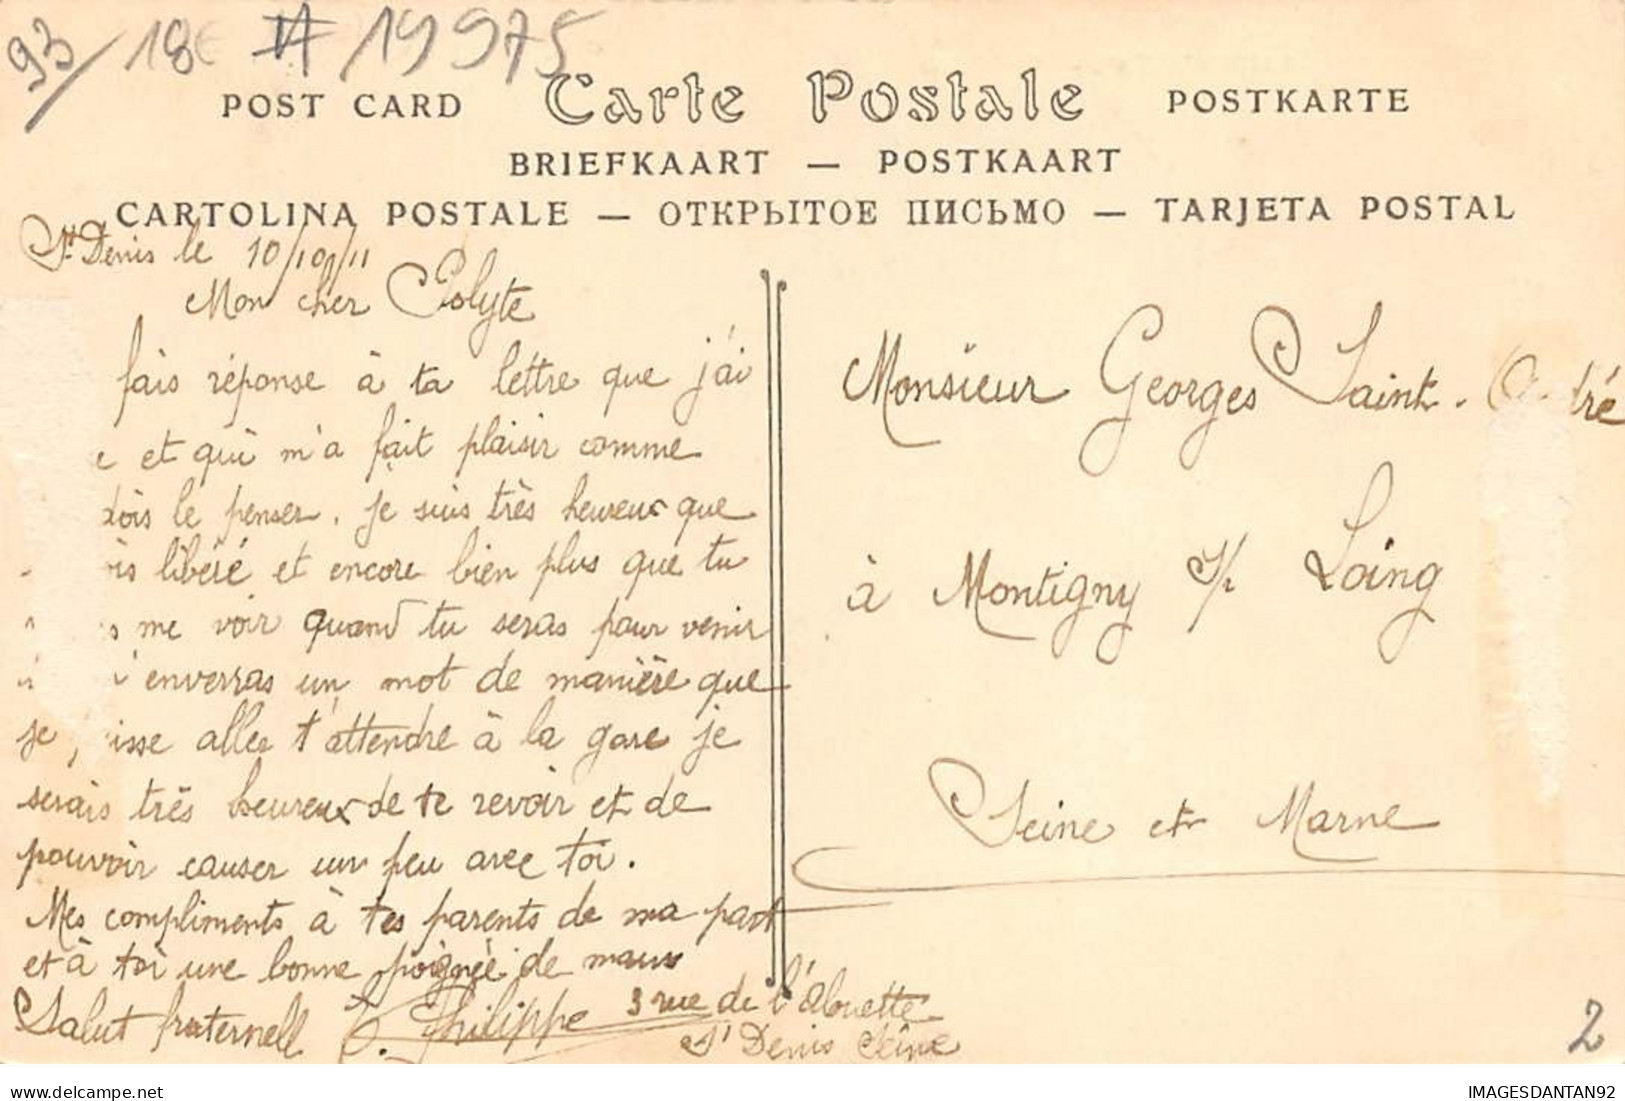 93/ 18 # 19975
POST CARD Carte Postale POSTKARTE
BRIEFKAART — POSTKAART
CARTOLINA POSTALE — ОТКРЫТОЕ ПИСЬМО — TARJETA POSTAL
St Denis le 10/10/11
Mon cher Polyte
fais réponse à ta lettre que j'ai
et qui m'a fait plaisir comme
dois le penser. Je suis très heureux que
libéré et encore bien plus que tu
me voir quand tu seras pour venir
enverras un mot de manière que
je allee t'attendre à la gare je
serais très heureux de te revoir et de
pouvoir causer un peu avec toi.
Mes compliments à tes parents de ma part
et à toi une bonne poignée de main
Salut fraternell Philippe 3 rue de l'Alouette
St Denis Seine
Monsieur Georges Saint-André
à Montigny s/ Loing
Seine et Marne
2
delcampe.net
IMAGESDANTAN92